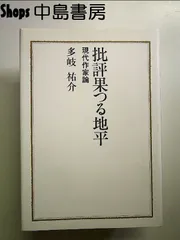 Shops 中島書房
批評果つる地平
現代作家論
多岐祐介